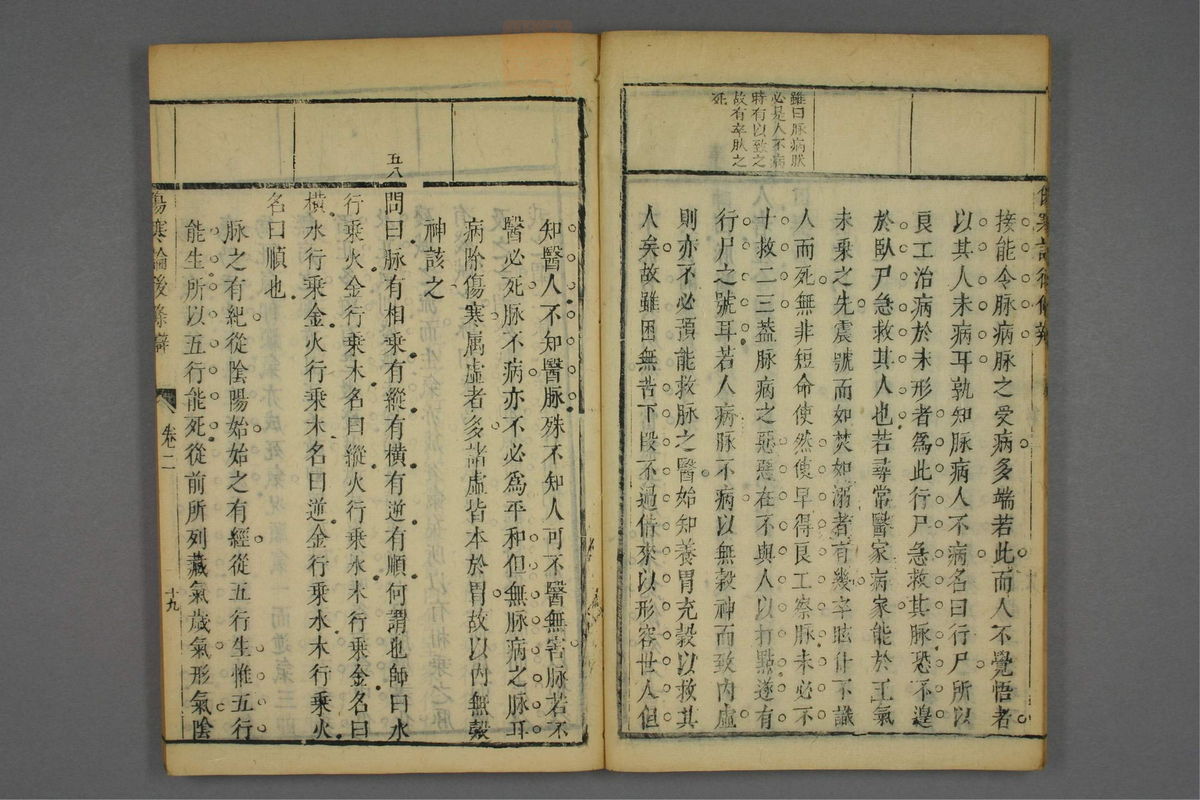 雖曰脉病狀
必是人不病
時有以致之
故有卒肰之
死
接能令脉病脉之受病多端若此而人不覺悟者
以其人未病耳孰知脉病人不病名曰行尸所以
良工治病於未形者爲此行尸急救其脉恐不遑
於臥尸急救其人也若尋常醫家病家能於王氣
未乘之先震號而如焚如溺者有幾卒眩仆不識
人而死無非短命使然使早得良工察脉未必不
十救二三葢脉病之惡惡在不與人以打點遂有
行尸之號耳若人病脉不病以無榖神而致內虛
則亦不必預能救脉之醫始知養胃充榖以救其
人矣故雖困無苦下段不過借來以形容世人但
知醫人不知醫脉殊不知人可不醫無害脉若不
醫必死脉不病亦不必爲平和但無脉病之脉耳
病除傷寒属虛者多諸虛皆本於胃故以內無榖
神該之
五八
問曰脉有相乘有縱有橫有逆有順何謂也師曰水
行乘火金行乘木名曰縱火行乘水木行乘金名曰
橫水行乘金火行乘木名曰逆金行乘水木行乘火
名曰順也
脉之有紀從陰陽始始之有經從五行生惟五行
能生所以五行能死從前所列藏氣歲氣形氣陰
傷寒論後條辯
卷二
十九